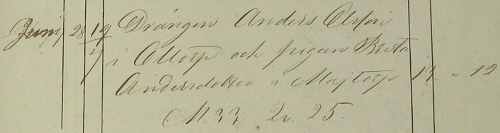 Juni 28 19/7 Drängen Anders Olsson
i Altorp och pigan Greta
Andersdotter i Maptorp 14 " 12
M 33, Qv. 25.